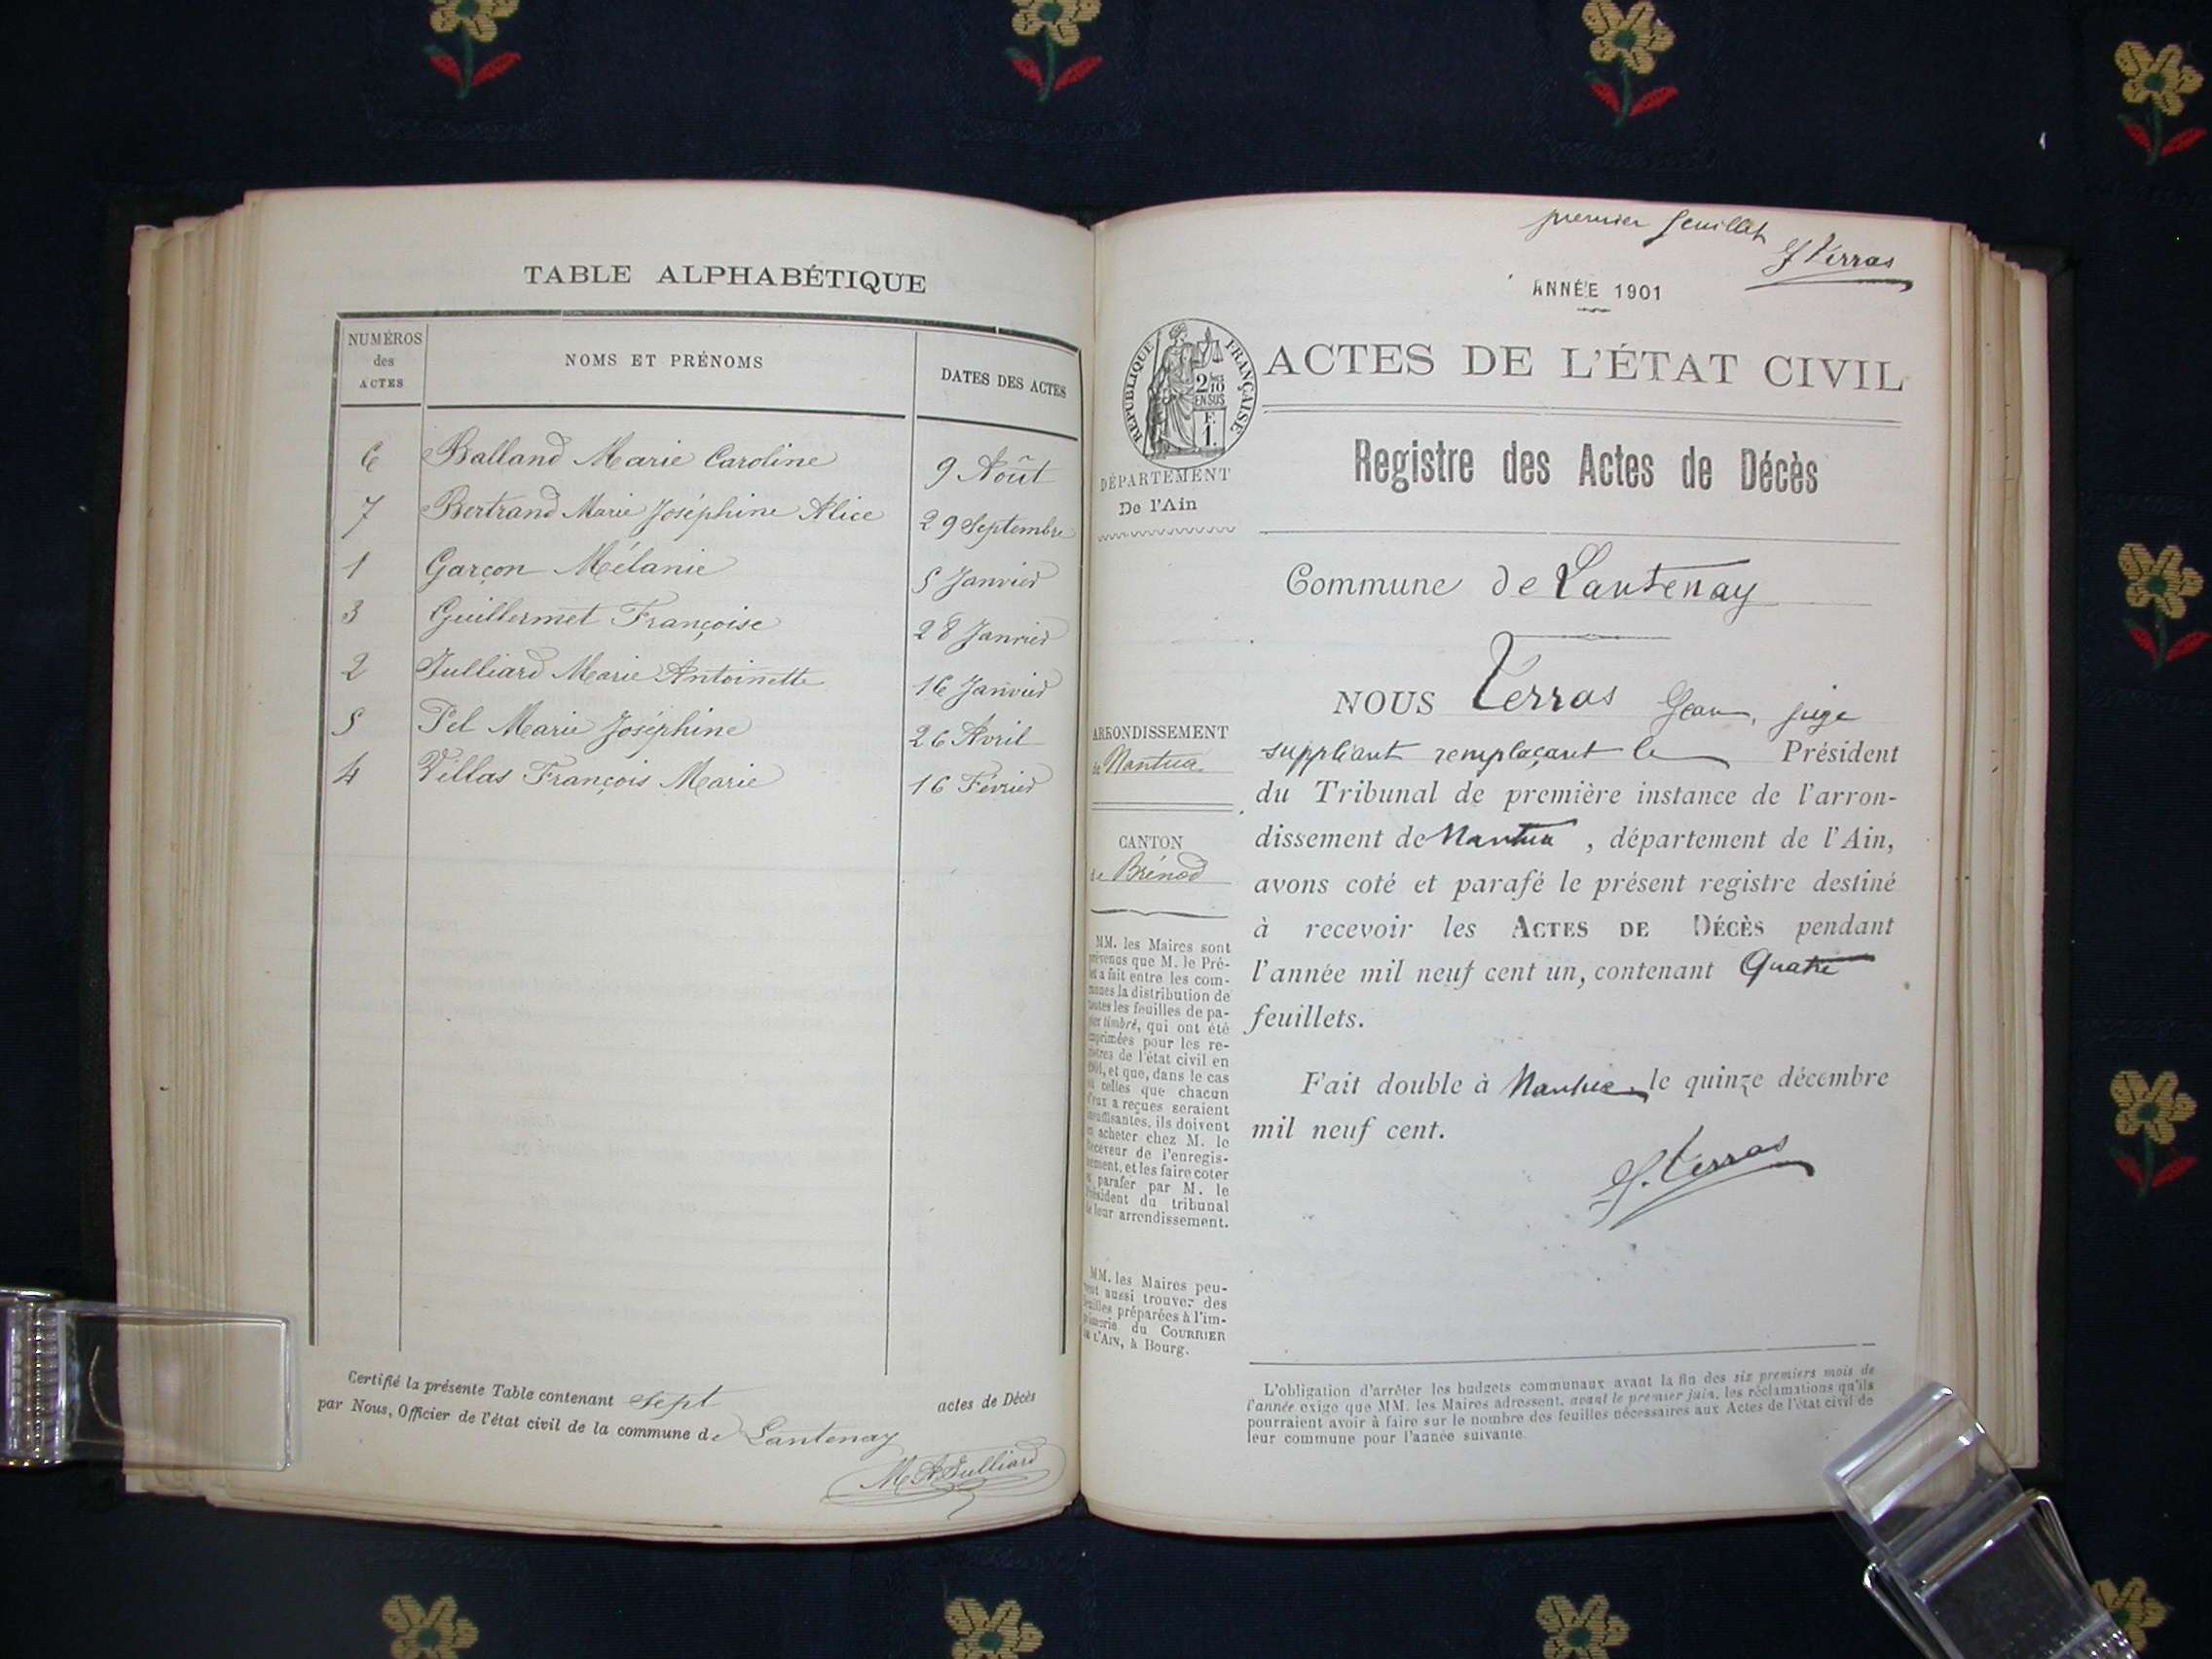 TABLE ALPHABÉTIQUE
NUMÉROS des ACTES
NOMS ET PRÉNOMS
DATES DES ACTES
6 Balland Marie Caroline 9 Août
7 Bertrand Marie Joséphine Alice 29 Septembre
1 Garçon Mélanie 5 Janvier
3 Guillermet Françoise 28 Janvier
2 Julliard Marie Antoinette 16 Janvier
5 Pel Marie Joséphine 26 Avril
4 Villas François Marie 16 Février
Certifié la présente Table contenant Sept actes de Décès
par Nous, Officier de l'état civil de la commune de Lantenay
Julliard
premier feuillet
J Verras
ANNÉE 1901
RÉPUBLIQUE FRANÇAISE
2/10 EN SUS
F.
1.
ACTES DE L'ÉTAT CIVIL
DÉPARTEMENT
De l'Ain
Registre des Actes de Décès
Commune de Lantenay
ARRONDISSEMENT
de Nantua
CANTON
de Brénod
MM. les Maires sont
prévenus que M. le Pré-
fet a fait entre les com-
munes la distribution de
toutes les feuilles de pa-
pier timbré, qui ont été
imprimées pour les re-
gistres de l'état civil en
1901, et que, dans le cas
où celles que chacun
d'eux a reçues seraient
insuffisantes, ils doivent
en acheter chez M. le
Receveur de l'enregis-
trement, et les faire coter
et parafer par M. le
Président du tribunal
de leur arrondissement.
MM. les Maires peu-
vent aussi trouver des
feuilles préparées à l'im-
primerie du COURRIER
DE L'AIN, à Bourg.
NOUS Verras Jean, juge
suppléant remplaçant le Président
du Tribunal de première instance de l'arron-
dissement de Nantua, département de l'Ain,
avons coté et parafé le présent registre destiné
à recevoir les ACTES DE DÉCÈS pendant
l'année mil neuf cent un, contenant Quatre
feuillets.
Fait double à Nantua, le quinze décembre
mil neuf cent.
J. Verras
L'obligation d'arrêter les budgets communaux avant la fin des six premiers mois de
l'année exige que MM. les Maires adressent, avant le premier juin, les réclamations qu'ils
pourraient avoir à faire sur le nombre des feuilles nécessaires aux Actes de l'état civil de
leur commune pour l'année suivante.